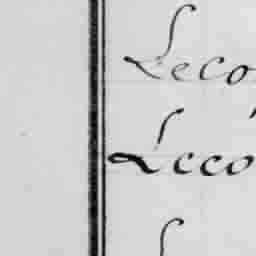 Leco
Leco